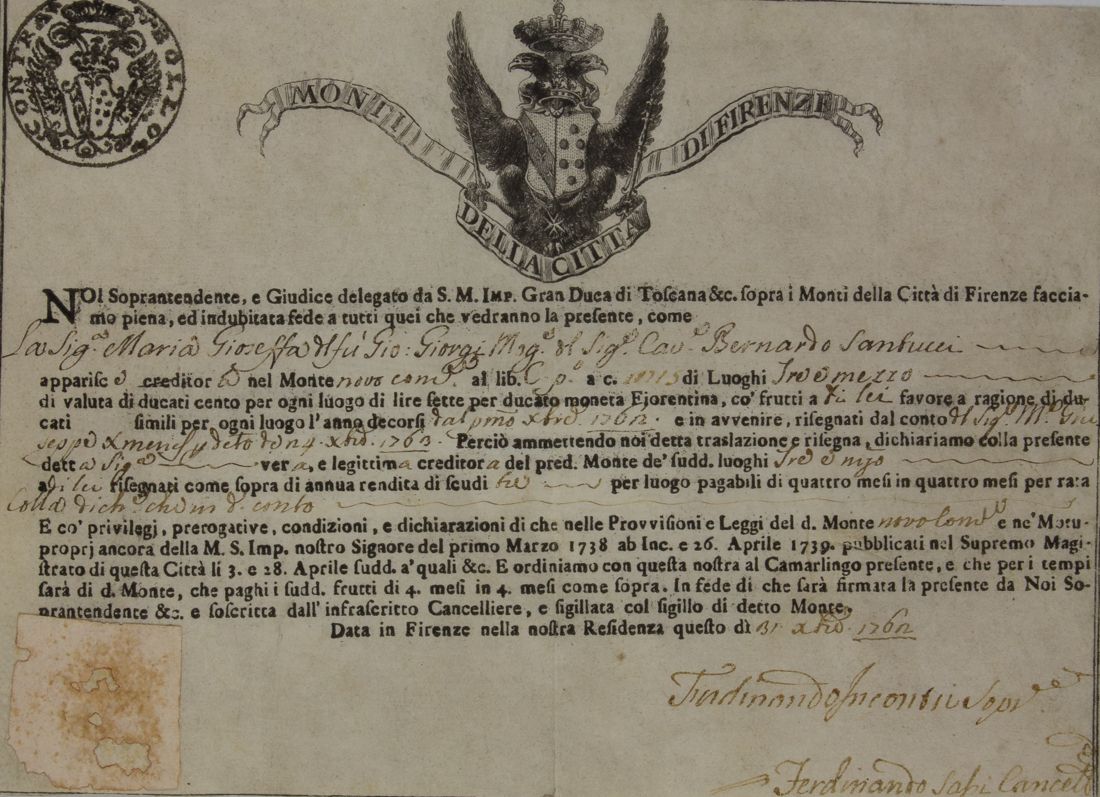 CONTRA BOLLO
MONTI
DI FIRENZE
DELLA CITTA
NOI Soprantendente, e Giudice delegato da S. M. IMP. Gran Duca di Toscana &c. sopra i Monti della Città di Firenze faccia-
mo piena, ed indubitata fede a tutti quei che vedranno la presente, come
La Sig.ra Maria Gioseffa del fù Gio: Giorgi Mog.e del Sig.r Cav.e Bernardo Santucci
apparisce creditor nel Monte novo com. al lib. C p.o a c. di Luoghi Tre e mezzo
di valuta di ducati cento per ogni luogo di lire sette per ducato moneta Fiorentina, co' frutti a di lei favore a ragione di du-
cati simili per ogni luogo l'anno decorsi dal pmo xbre 1762. e in avvenire, risegnati dal conto del Sig.
1762. Perciò ammettendo noi detta traslazione e risegna, dichiariamo colla presente
detta Sig.ra vera, e legittima creditora del pred. Monte de' sudd. luoghi Tre e
a di lei risegnati come sopra di annua rendita di scudi tre per luogo pagabili di quattro mesi in quattro mesi per rata
Colla dich. che in d. conto
E co' privilegj, prerogative, condizioni, e dichiarazioni di che nelle Provvisioni e Leggi del d. Monte novo Com. e ne' Motu-
proprj ancora della M. S. Imp. nostro Signore del primo Marzo 1738 ab Inc. e 26. Aprile 1739. pubblicati nel Supremo Magi-
strato di questa Città li 3. e 28. Aprile sudd. a' quali &c. E ordiniamo con questa nostra al Camarlingo presente, e che per i tempi
sarà di d. Monte, che paghi i sudd. frutti di 4. mesi in 4. mesi come sopra. In fede di che sarà firmata la presente da Noi So-
prantendente &c. e soscritta dall' infrascritto Cancelliere, e sigillata col sigillo di detto Monte.
Data in Firenze nella nostra Residenza questo dì 31 xbre 1762
Ferdinando Incontri Sopr.e
Ferdinando Sassi Cancell